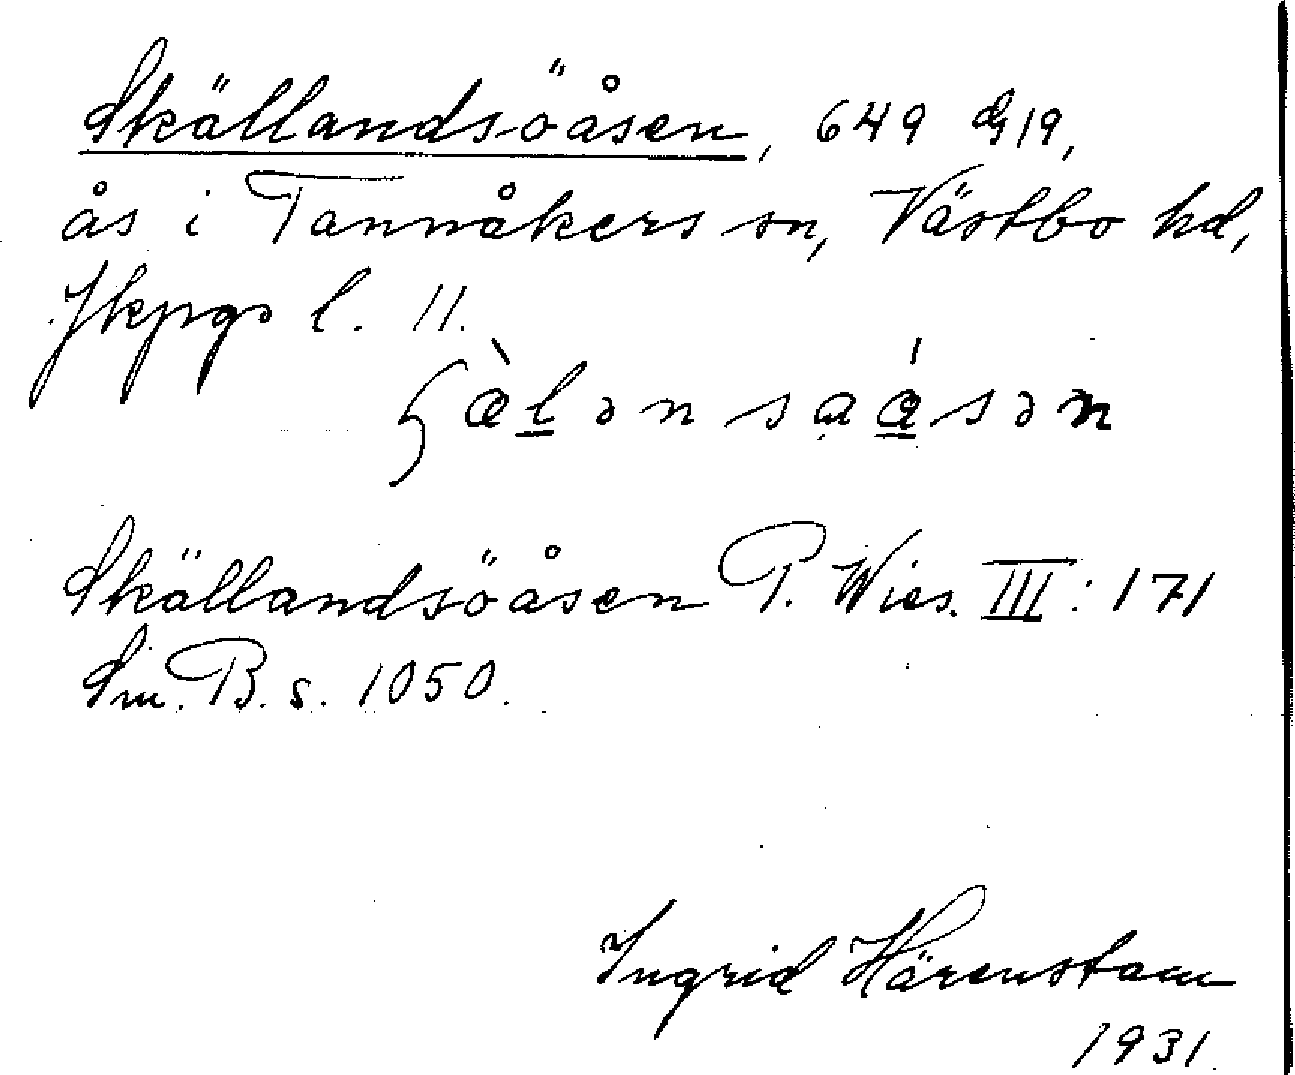 Skällandsöåsen, 649 G19,
ås i Tannåkers sn, Västbo hd,
Jkpgs l. 11.
ɧæ̀l̲ən sɑá̲sən
Skällandsöåsen P. Wies. III: 171
Sm. B. s. 1050.
Ingrid Härenstam
1931.